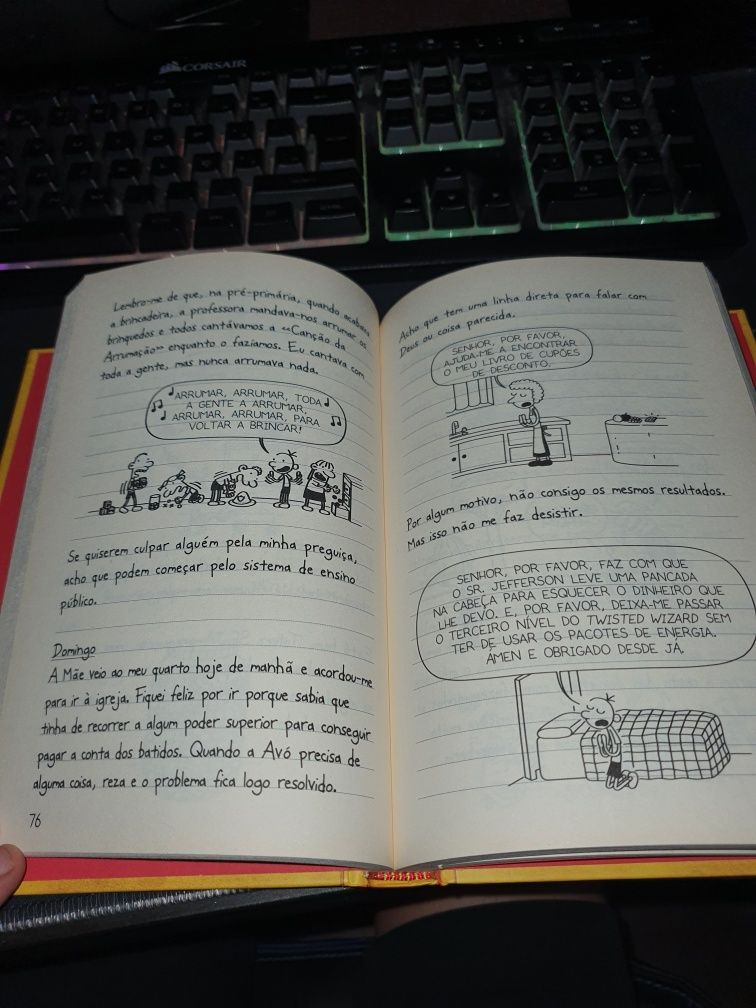 CORSAIR
Lembro-me de que, na pré-primária, quando acabava
a brincadeira, a professora mandava-nos arrumar os
brinquedos e todos cantávamos a «Canção da
Arrumação» enquanto o fazíamos. Eu cantava com
toda a gente, mas nunca arrumava nada.
ARRUMAR, ARRUMAR, TODA
A GENTE A ARRUMAR;
ARRUMAR, ARRUMAR, PARA
VOLTAR A BRINCAR!
Se quiserem culpar alguém pela minha preguiça,
acho que podem começar pelo sistema de ensino
público.
Domingo
A Mãe veio ao meu quarto hoje de manhã e acordou-me
para ir à igreja. Fiquei feliz por ir porque sabia que
tinha de recorrer a algum poder superior para conseguir
pagar a conta dos batidos. Quando a Avó precisa de
alguma coisa, reza e o problema fica logo resolvido.
76
Acho que tem uma linha direta para falar com
Deus ou coisa parecida.
SENHOR, POR FAVOR,
AJUDA-ME A ENCONTRAR
O MEU LIVRO DE CUPÕES
DE DESCONTO.
Por algum motivo, não consigo os mesmos resultados.
Mas isso não me faz desistir.
SENHOR, POR FAVOR, FAZ COM QUE
O SR. JEFFERSON LEVE UMA PANCADA
NA CABEÇA PARA ESQUECER O DINHEIRO QUE
LHE DEVO. E, POR FAVOR, DEIXA-ME PASSAR
O TERCEIRO NÍVEL DO TWISTED WIZARD SEM
TER DE USAR OS PACOTES DE ENERGIA.
ÁMEN E OBRIGADO DESDE JÁ.